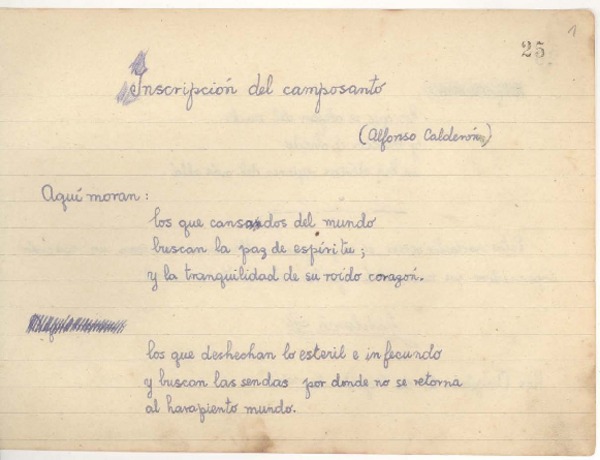 25
1
Inscripción del camposanto
(Alfonso Calderón)
Aquí moran:
los que cansados del mundo
buscan la paz de espíritu;
y la tranquilidad de su roído corazón.
los que deshechan lo esteril e infecundo
y buscan las sendas por donde no se retorna
al harapiento mundo.